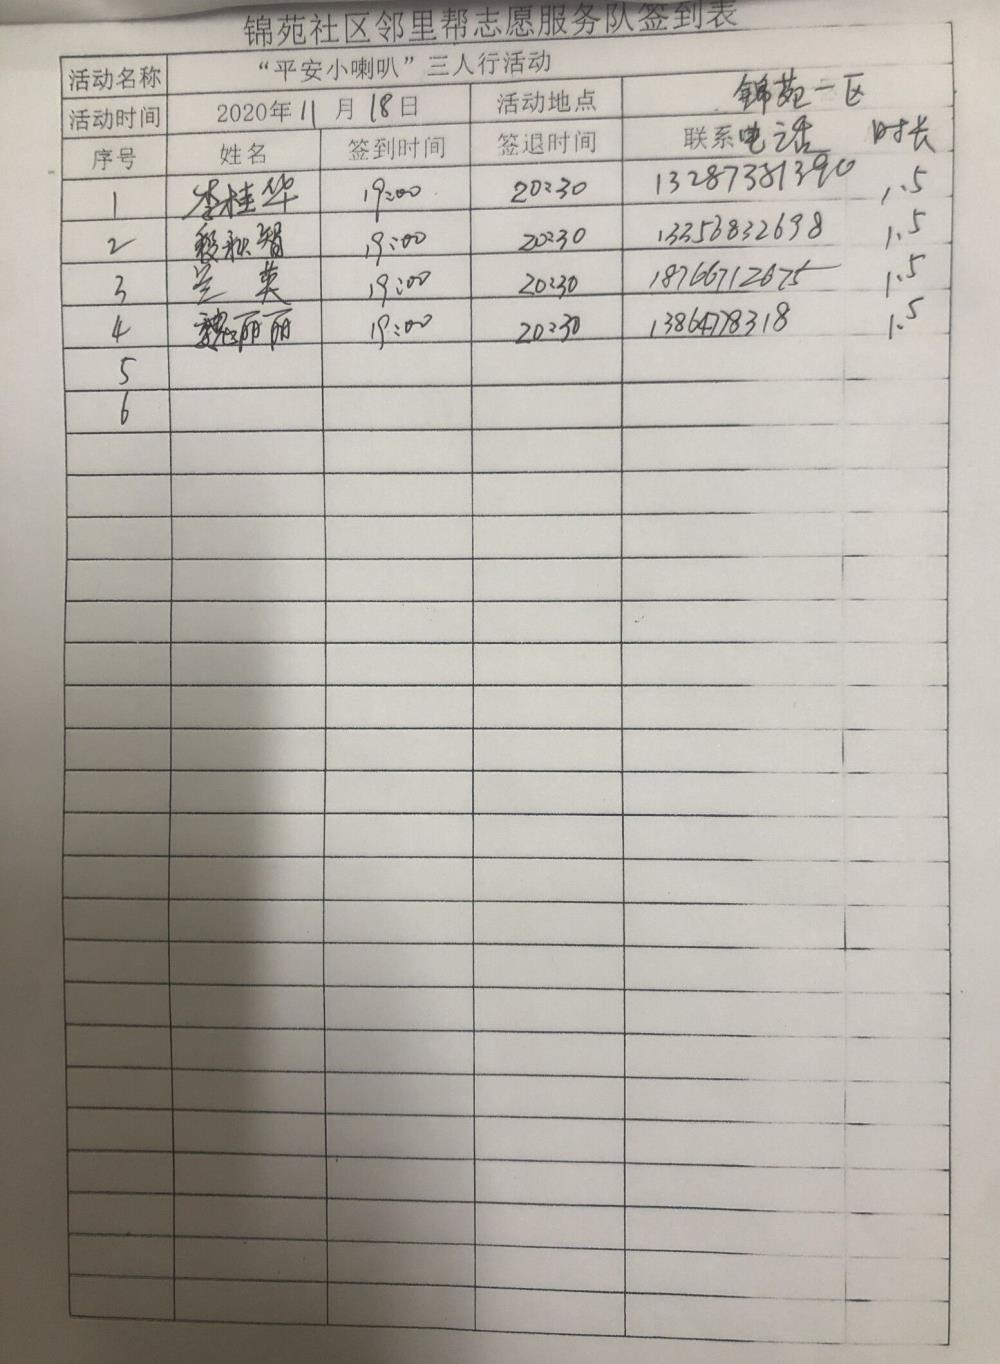 锦苑社区邻里帮志愿服务队签到表
活动名称 “平安小喇叭”三人行活动
活动时间 2020年11月18日 活动地点 锦苑一区
序号 姓名 签到时间 签退时间 联系电话 时长
1 李桂华 19:00 20:30 13287381390 1.5
2 秋智 19:00 20:30 13356832698 1.5
3 兰英 19:00 20:30 18766712675 1.5
4 魏丽丽 19:00 20:30 13864778318 1.5
5
6